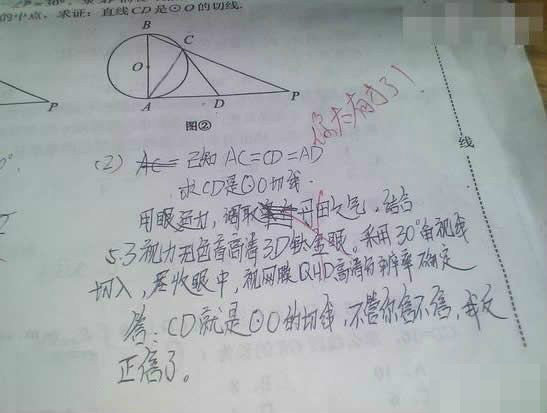 的中点，求证：直线CD是⊙O的切线.
B
C
O
A
D
P
P
图②
你太有才了！
线
(2) 已知 AC=CD=AD
求CD是⊙O切线.
用眼运力，调取丹田之气，结合
5.3视力无色音高清3D钛金眼。采用30°角视线
切入，尽收眼中，视网膜QHD高清分辨率确定
答：CD就是⊙O的切线，不管你信不信，我反
正信了。